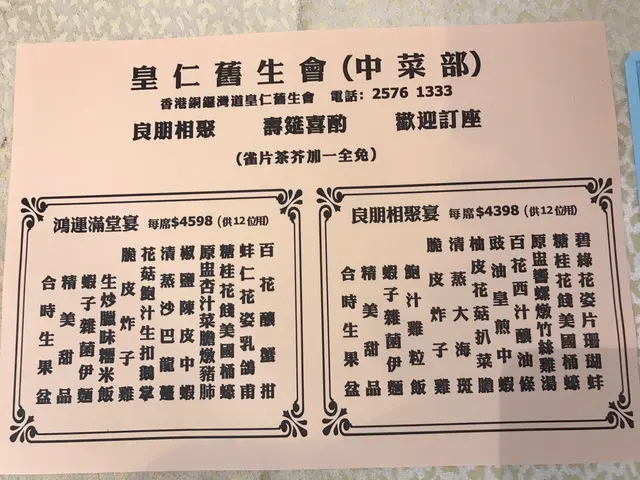 皇仁舊生會(中菜部)
香港銅鑼灣道皇仁舊生會 電話: 2576 1333
良朋相聚 壽筵喜酌 歡迎訂座
(雀片茶芥加一全免)
鴻運滿堂宴 每席$4598 (供12位用)
百花釀蟹拑
蚌仁花姿乳鴿甫
糖桂花餞美國桶蠔
原盅杏汁菜膽燉豬肺
椒鹽陳皮中蝦
清蒸沙巴龍躉
花菇鮑汁生扣鵝掌
脆皮炸子雞
生炒臘味糯米飯
蝦子雜菌伊麵
精美甜品
合時生果盆
良朋相聚宴 每席$4398 (供12位用)
碧綠花姿片珊瑚蚌
糖桂花餞美國桶蠔
原盅響螺燉竹絲雞湯
百花西汁釀油條
豉油皇煎中蝦
柚皮花菇扒菜膽
清蒸大海斑
脆皮炸子雞
鮑汁雞粒飯
蝦子雜菌伊麵
精美甜品
合時生果盆